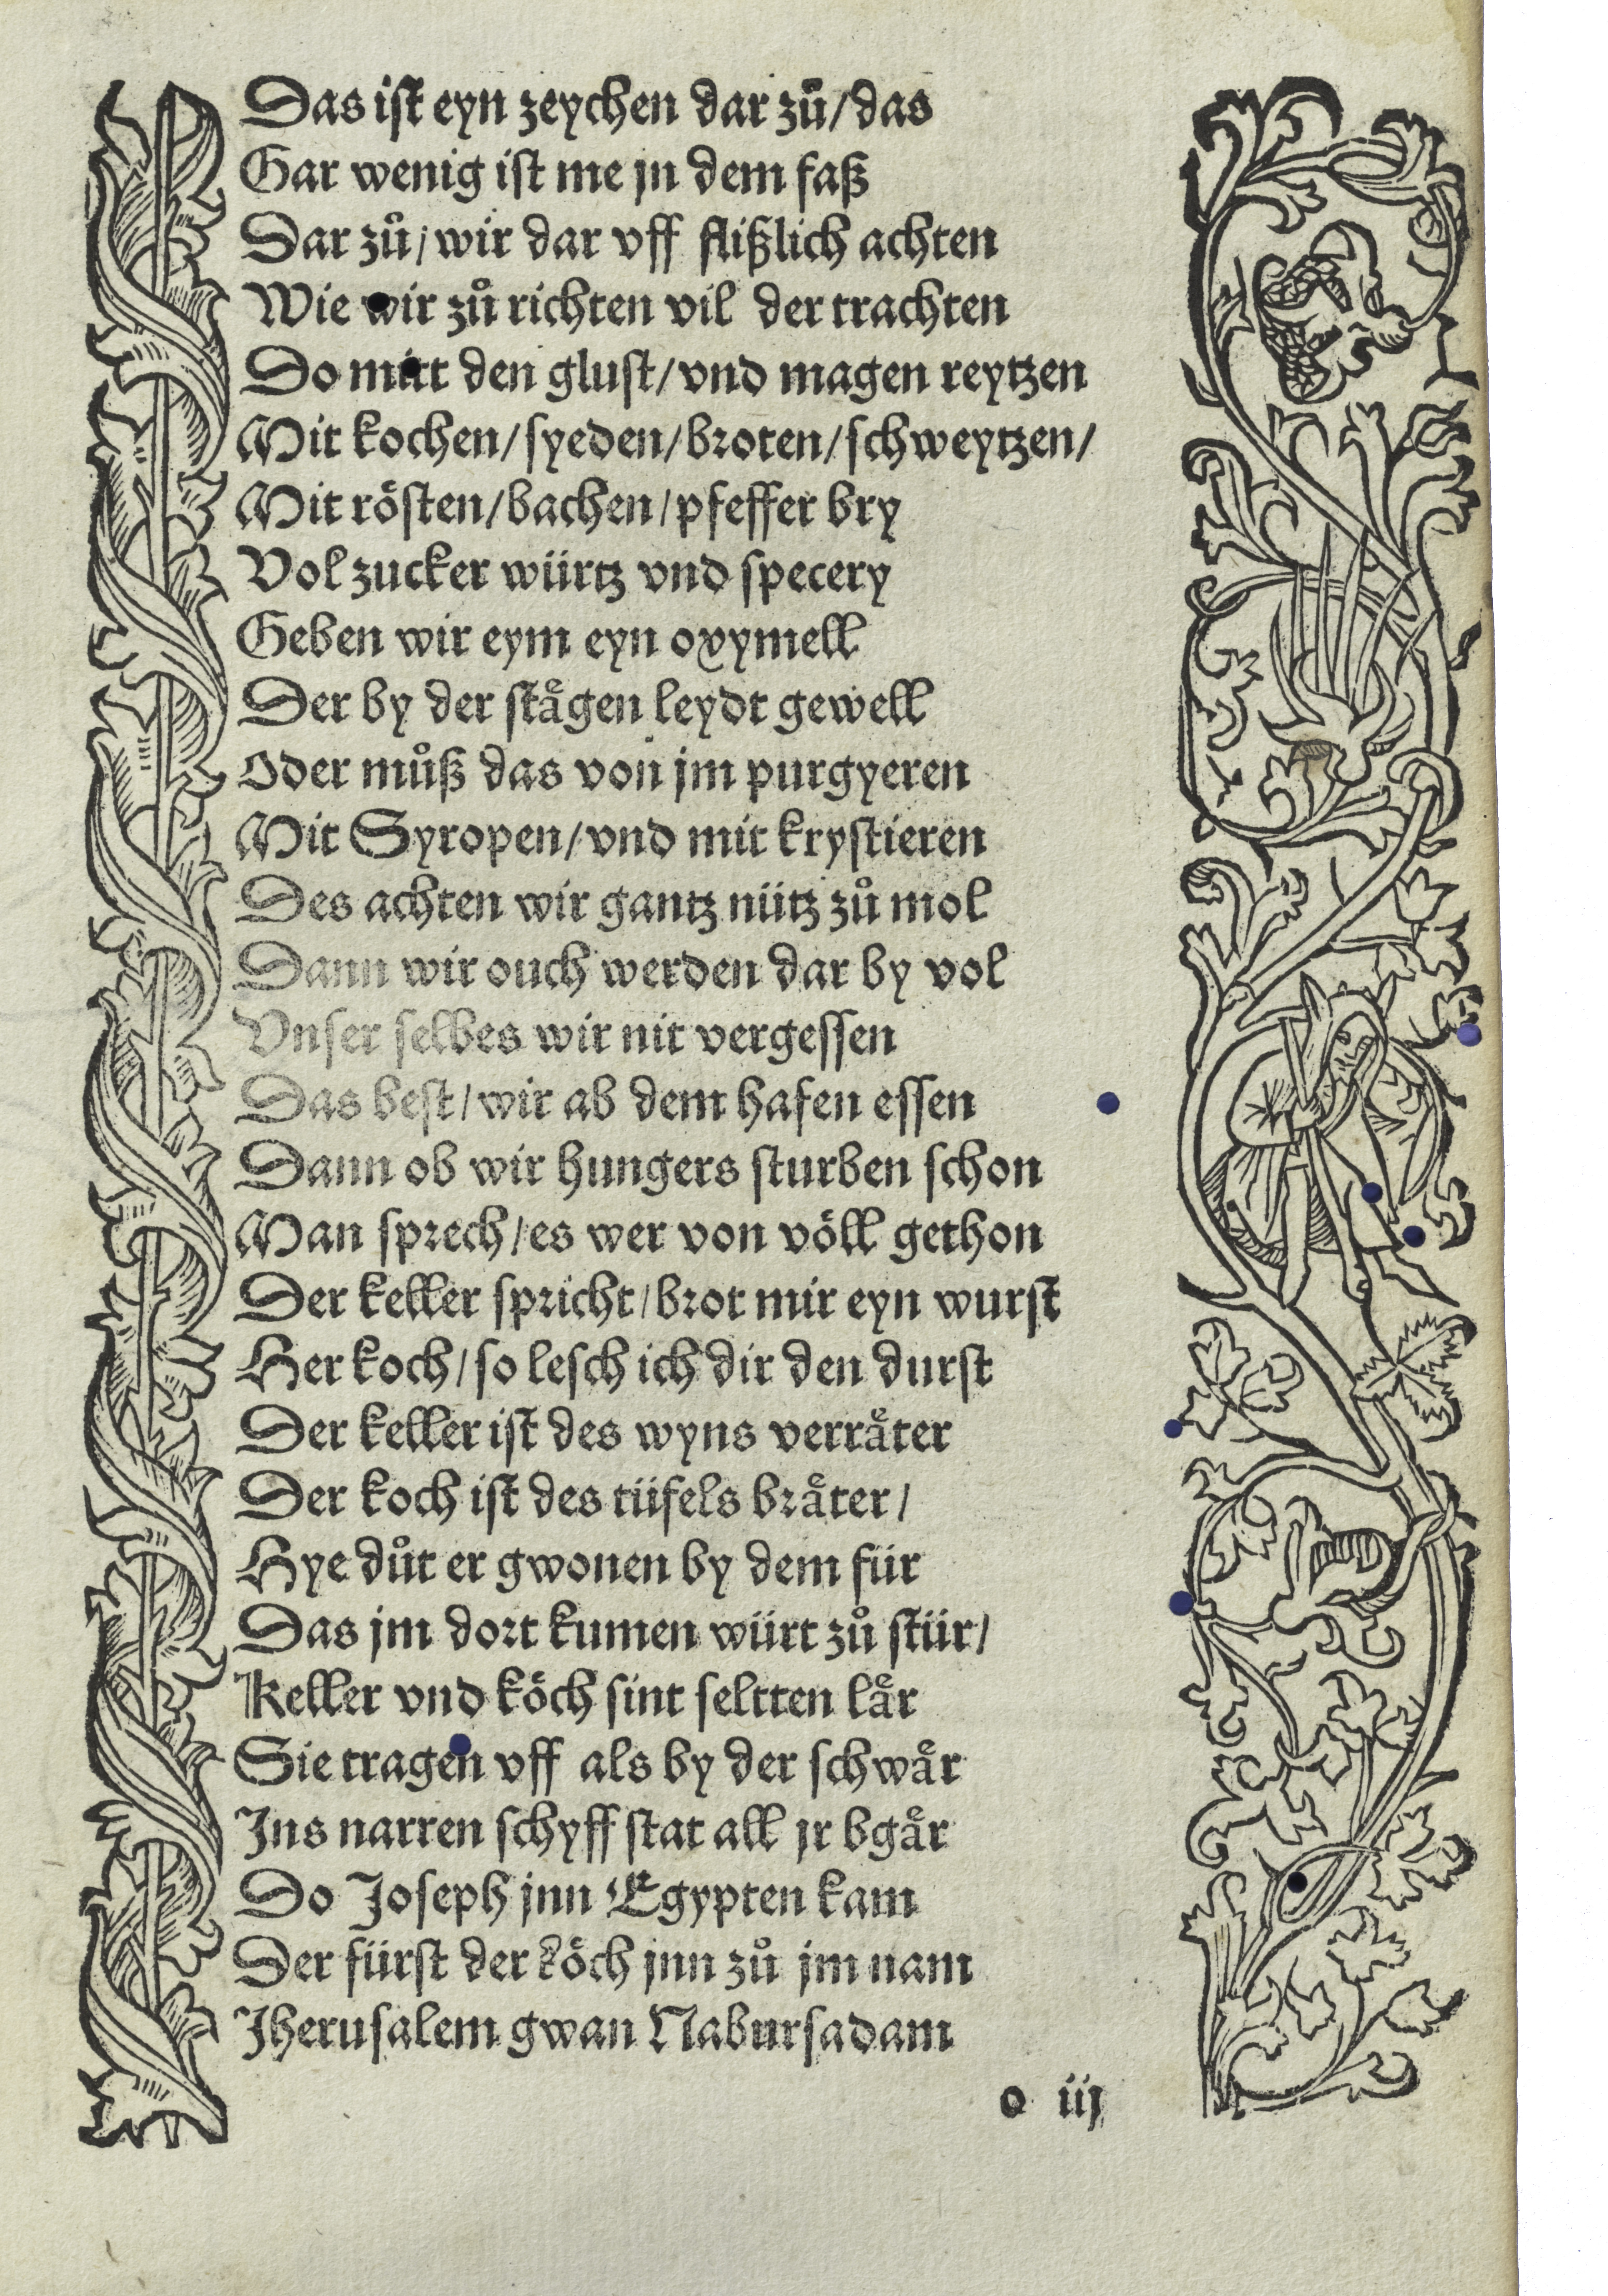 Das iſt eyn zeychen dar zů/das
Gar wenig iſt me jn dem faß
Dar zů/wir dar vff flißlich achten
Wie wir zů richten vil der trachten
Do mitt den gluſt/vnd magen reytzen
Mit kochen/ſyeden/broten/ſchweytzen/
Mit röſten/bachen/pfeffer bry
Vol zucker würtz vnd ſpecery
Geben wir eym eyn oxymell
Der by der ſtaͤgen leydt gewell
Oder můß das von jm purgyeren
Mit Syropen/vnd mit kryſtieren
Des achten wir gantz nütz zů mol
Dann wir ouch werden dar by vol
Vnſer ſelbes wir nit vergeſſen
Das beſt/wir ab dem hafen eſſen
Dann ob wir hungers ſturben ſchon
Man ſprech/es wer von völl gethon
Der keller ſpricht/brot mir eyn wurſt
Her koch/ſo leſch ich dir den durſt
Der keller iſt des wyns verraͤter
Der koch iſt des tüfels braͤter/
Hye důt er gwonen by dem für
Das jm dort kumen würt zů ſtür/
Keller vnd köch ſint ſeltten laͤr
Sie tragen vff als by der ſchwaͤr
Ins narren ſchyff ſtat all jr bgaͤr
Do Joſeph jnn Egypten kam
Der fürſt der köch jnn zů jm nam
Jheruſalem gwan Naburſadam
o iij